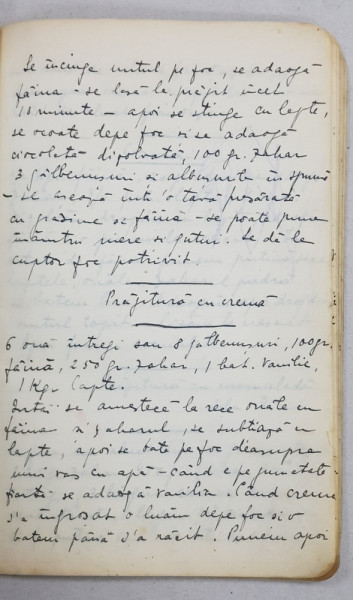 Se încinge untul pe foc, se adaogă
făina - se lasă la prăjit încet
10 minute - apoi se stinge cu lapte,
se scoate depe foc si se adaogă
ciocolată disolvată, 100 gr. zahar
3 gălbenușuri si albusurile în spumă
- se asează într'o tavă presărată
cu grăsime si făină - se poate pune
înăuntru mere si gutui. Se dă la
cuptor foc potrivit
Prăjitură cu cremă
6 ouă întregi sau 8 gălbenușuri, 100 gr.
făină, 250 gr. zahar, 1 bat. vanilie,
1 Kgr lapte.
Întăi se amestecă la rece ouăle cu
făina si zaharul, se subtiază cu
lapte, apoi se bate pe foc deasupra
unui vas cu apă - când e pe jumătate
fiartă se adaogă vanilia. Când crema
s'a îngrosat o luăm depe foc si o
batem până s'a răcit. Punem apoi